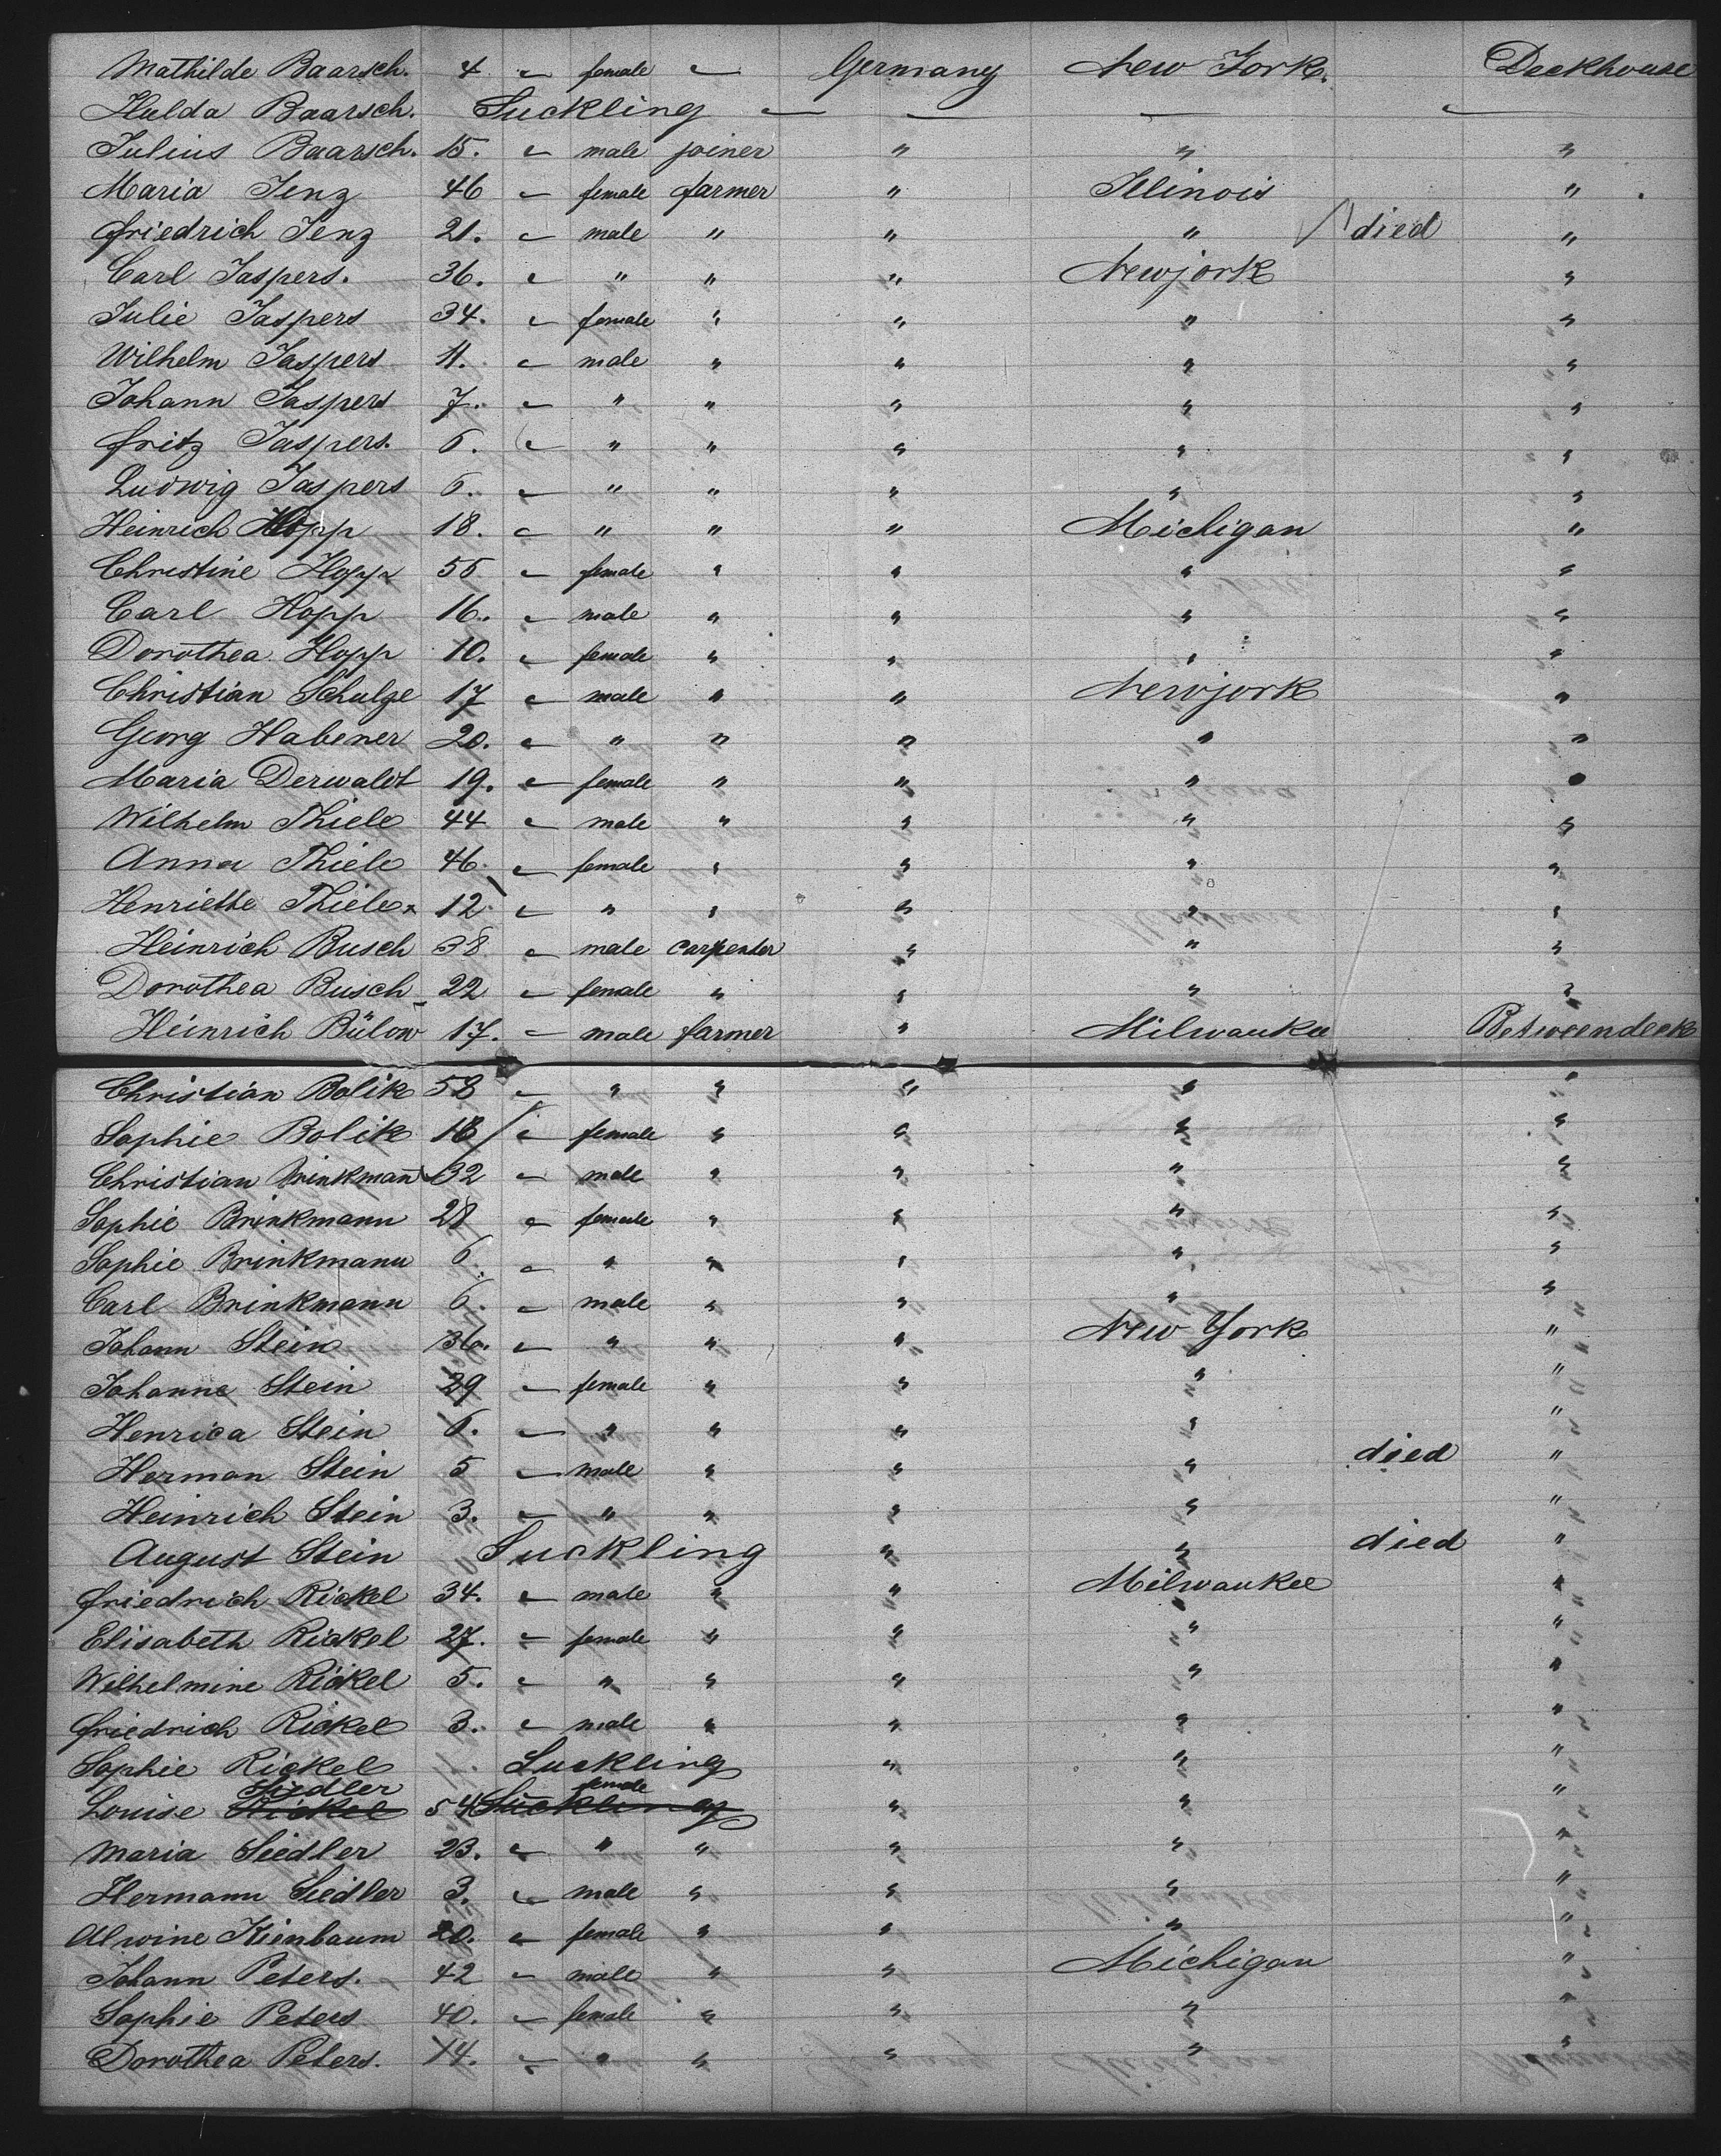 Mathilde Baarsch. 4 — female — Germany New York. Deckhouse
Hulda Baarsch. Suckling — — — —
Julius Baarsch. 15. — male joiner " " "
Maria Jenz 46 — female farmer " Illinois "
Friedrich Jenz 21. — male " " " died "
Carl Jaspers. 36. — " " " Newjork "
Julie Jaspers 34. — female " " " "
Wilhelm Jaspers 11. — male " " " "
Johann Jaspers 7. — " " " " "
Fritz Jaspers. 6. — " " " " "
Ludwig Jaspers 6. — " " " " "
Heinrich Hopp 18. — " " " Michigan "
Christine Hopp 55 — female " " " "
Carl Hopp 16. — male " " " "
Dorothea Hopp 10. — female " " " "
Christian Schulze 17 — male " " Newjork "
Georg Habener 20. — " " " " "
Maria Derwaldt 19. — female " " " "
Wilhelm Thiele 44 — male " " " "
Anna Thiele 46. — female " " " "
Henriette Thiele 12 — " " " " "
Heinrich Busch 38 — male carpenter " " "
Dorothea Busch 22 — female " " " "
Heinrich Bülow 17. — male farmer " Milwaukee Betweendeck
Christian Bolik 58 — " " " " "
Sophie Bolik 18 — female " " " "
Christian Brinkmann 32 — male " " " "
Sophie Brinkmann 28 — female " " " "
Sophie Brinkmann 6. — " " " " "
Carl Brinkmann 6. — male " " " "
Johann Stein 36. — " " " New York "
Johanne Stein 29 — female " " " "
Henrica Stein 6. — " " " " "
Herman Stein 5 — male " " " died "
Heinrich Stein 3. — " " " " "
August Stein Suckling " " died "
Friedrich Rickel 34. — male " " Milwaukee "
Elisabeth Rickel 27. — female " " " "
Wilhelmine Rickel 5. — " " " " "
Friedrich Rickel 3. — male " " " "
Sophie Rickel Suckling " " "
Siedler female
Louise Rickel 54 Suckling " " "
Maria Siedler 23. — " " " " "
Hermann Siedler 3. — male " " " "
Alwine Kienbaum 20. — female " " " "
Johann Peters. 42 — male " " Michigan "
Sophie Peters 40. — female " " " "
Dorothea Peters. 14. — " " " " "